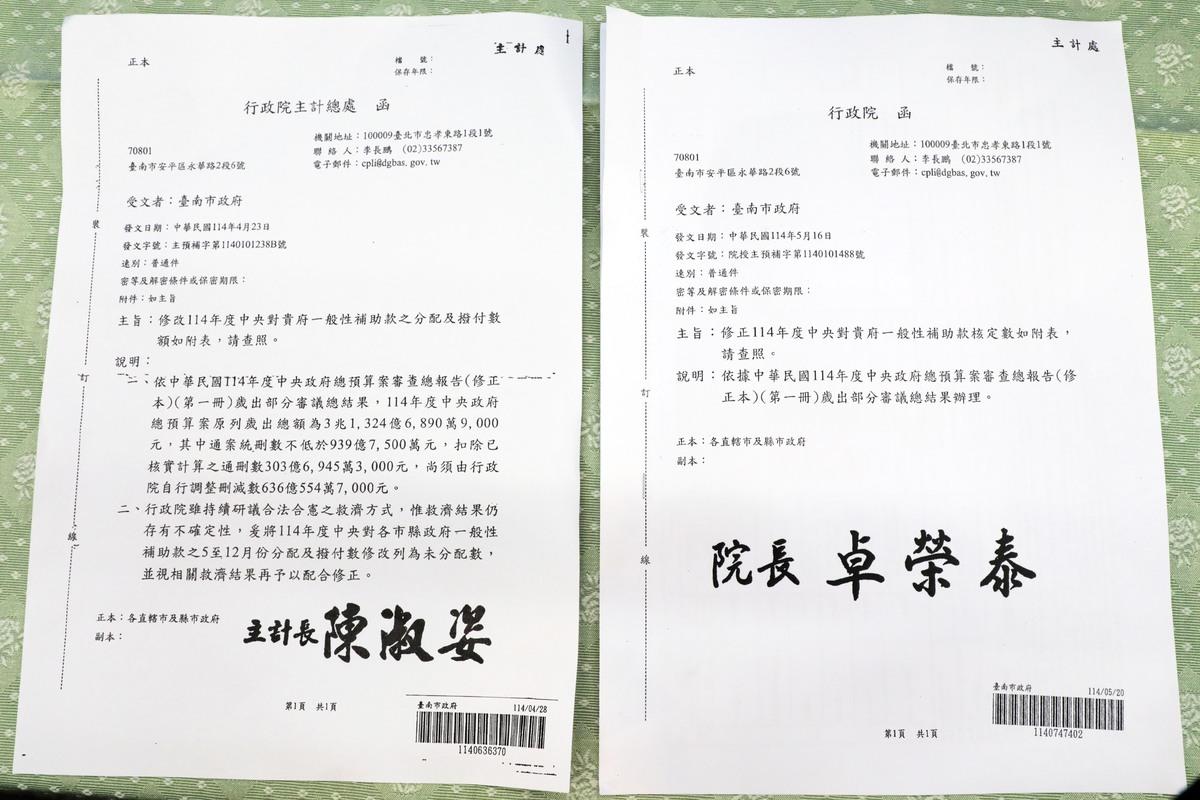 主計處
正本
檔　號：
保存年限：
行政院主計總處　函
機關地址：100009臺北市忠孝東路1段1號
聯 絡 人：李長鵬　(02)33567387
電子郵件：cpli@dgbas.gov.tw
70801
臺南市安平區永華路2段6號
受文者：臺南市政府
發文日期：中華民國114年4月23日
發文字號：主預補字第1140101238B號
速別：普通件
密等及解密條件或保密期限：
附件：如主旨
主旨：修改114年度中央對貴府一般性補助款之分配及撥付數
額如附表，請查照。
說明：
一、依中華民國114年度中央政府總預算案審查總報告(修正
本)(第一冊)歲出部分審議總結果，114年度中央政府
總預算案原列歲出總額為3兆1,324億6,890萬9,000
元，其中通案統刪數不低於939億7,500萬元，扣除已
核實計算之通刪數303億6,945萬3,000元，尚須由行政
院自行調整刪減數636億554萬7,000元。
二、行政院雖持續研議合法合憲之救濟方式，惟救濟結果仍
存有不確定性，爰將114年度中央對各市縣政府一般性
補助款之5至12月份分配及撥付數修改列為未分配數，
並視相關救濟結果再予以配合修正。
正本：各直轄市及縣市政府
副本：
主計長 陳淑姿
裝
訂
線
第1頁　共1頁
臺南市政府　114/04/28
1140636370
主計處
正本
檔　號：
保存年限：
行政院　函
機關地址：100009臺北市忠孝東路1段1號
聯 絡 人：李長鵬　(02)33567387
電子郵件：cpli@dgbas.gov.tw
70801
臺南市安平區永華路2段6號
受文者：臺南市政府
發文日期：中華民國114年5月16日
發文字號：院授主預補字第1140101488號
速別：普通件
密等及解密條件或保密期限：
附件：如主旨
主旨：修正114年度中央對貴府一般性補助款核定數如附表，
請查照。
說明：依據中華民國114年度中央政府總預算案審查總報告(修
正本)(第一冊)歲出部分審議總結果辦理。
正本：各直轄市及縣市政府
副本：
院長 卓榮泰
裝
訂
線
第1頁　共1頁
臺南市政府　114/05/20
1140747402